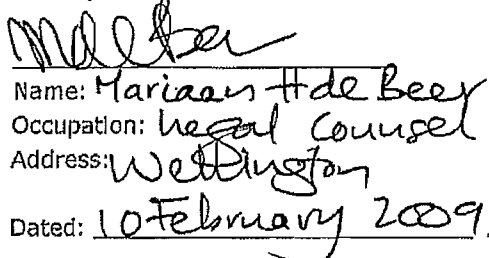 Name: Mariaan H de Beer
Occupation: Legal Counsel
Address: Wellington
Dated: 10 February 2009.